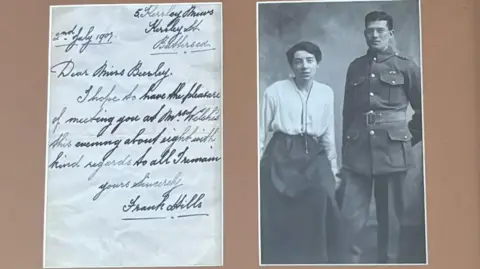 5, Kersley Mews
Kersley St.
2nd July 1907. Battersea
Dear Miss Bewley.
I hope to have the pleasure
of meeting you at Mrs Welch's
this evening about eight with
kind regards to all I remain
yours Sincerely
Frank Hills